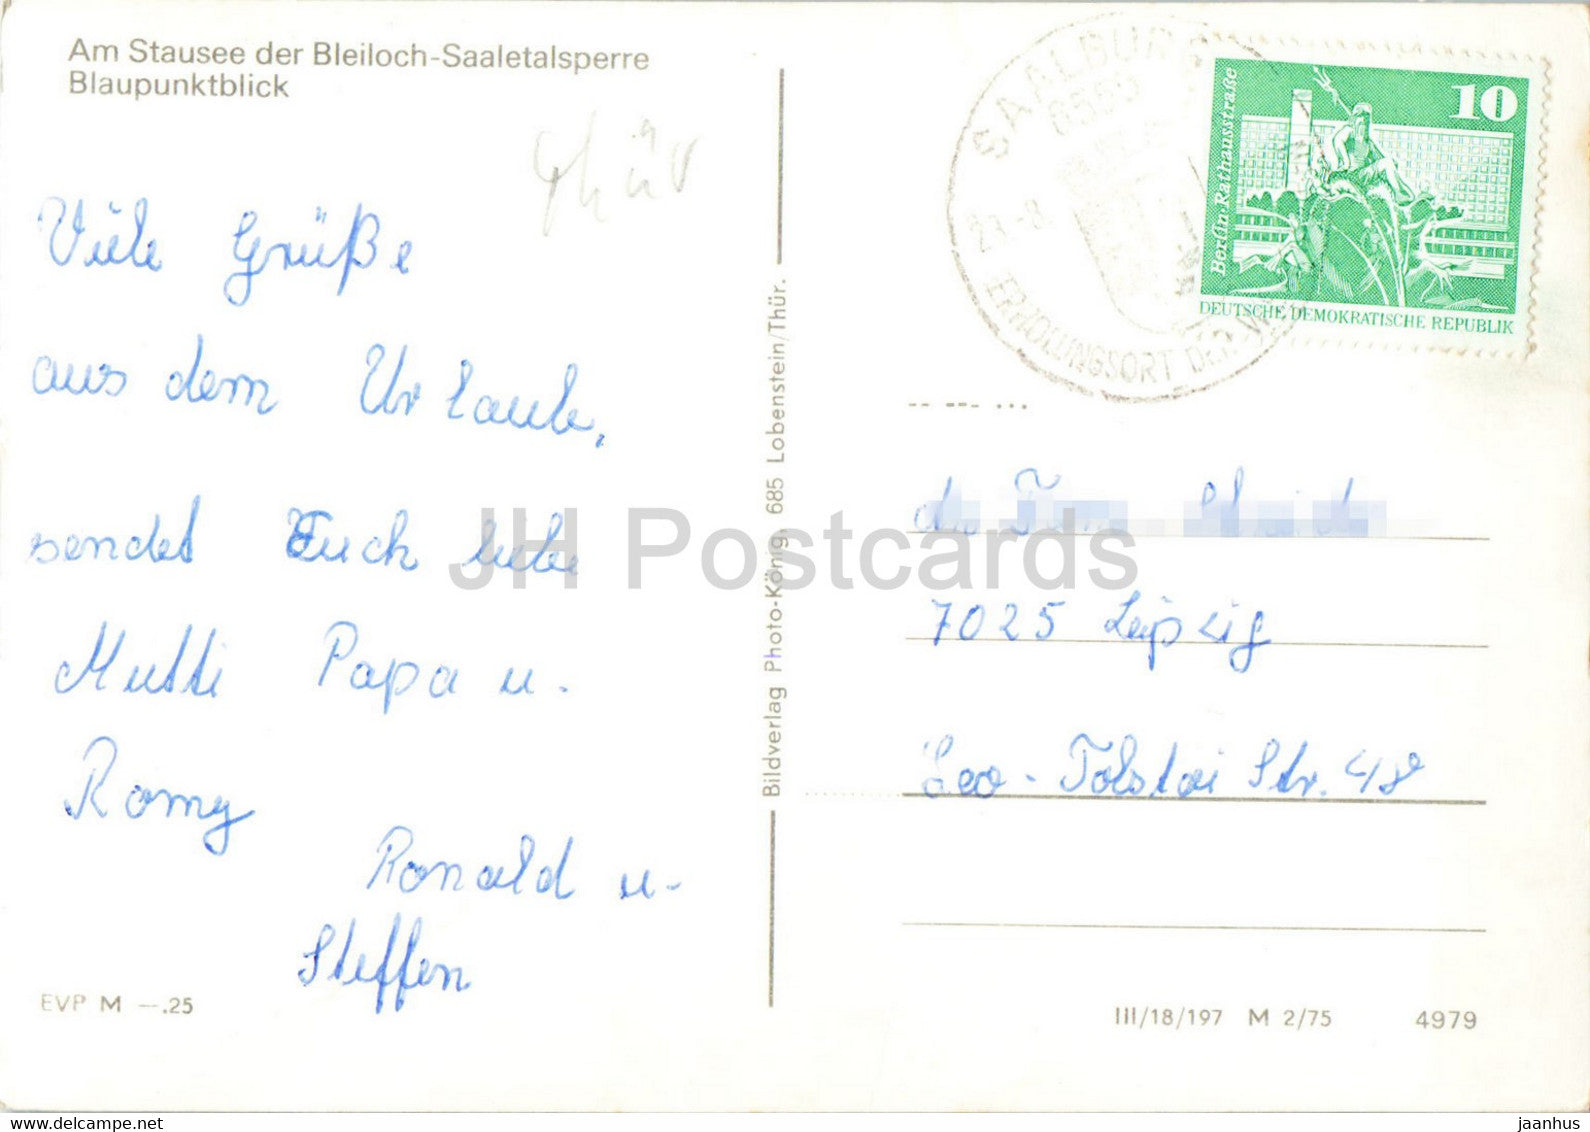 Am Stausee der Bleiloch-Saaletalsperre
Blaupunktblick
Thür
Viele Grüße
aus dem Urlaub,
sendet Euch liebe
Mutti Papa u.
Romy
Ronald u.
Steffen
EVP M —.25
Bildverlag Photo-König, 685 Lobenstein/Thür.
SAALBURG
ERHOLUNGSORT DER
10
Berlin-Rathausstraße
DEUTSCHE DEMOKRATISCHE REPUBLIK
7025 Leipzig
Leo-Tolstoi Str. 48
III/18/197 M 2/75 4979
JH Postcards
www.delcampe.net
jaanhus